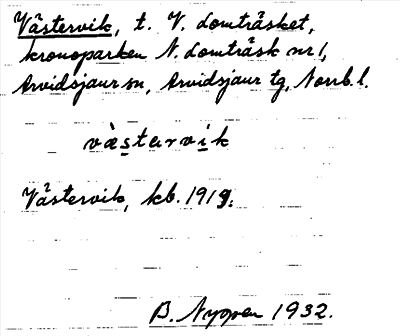 Västervik, t. V. Lomträsket,
kronoparken N. Lomträsk nr 1,
Arvidsjaur sn, Arvidsjaur tg, Norrb. l.
væ̀stərvik
Västervik, kb. 1919.
B. Nygren 1932.